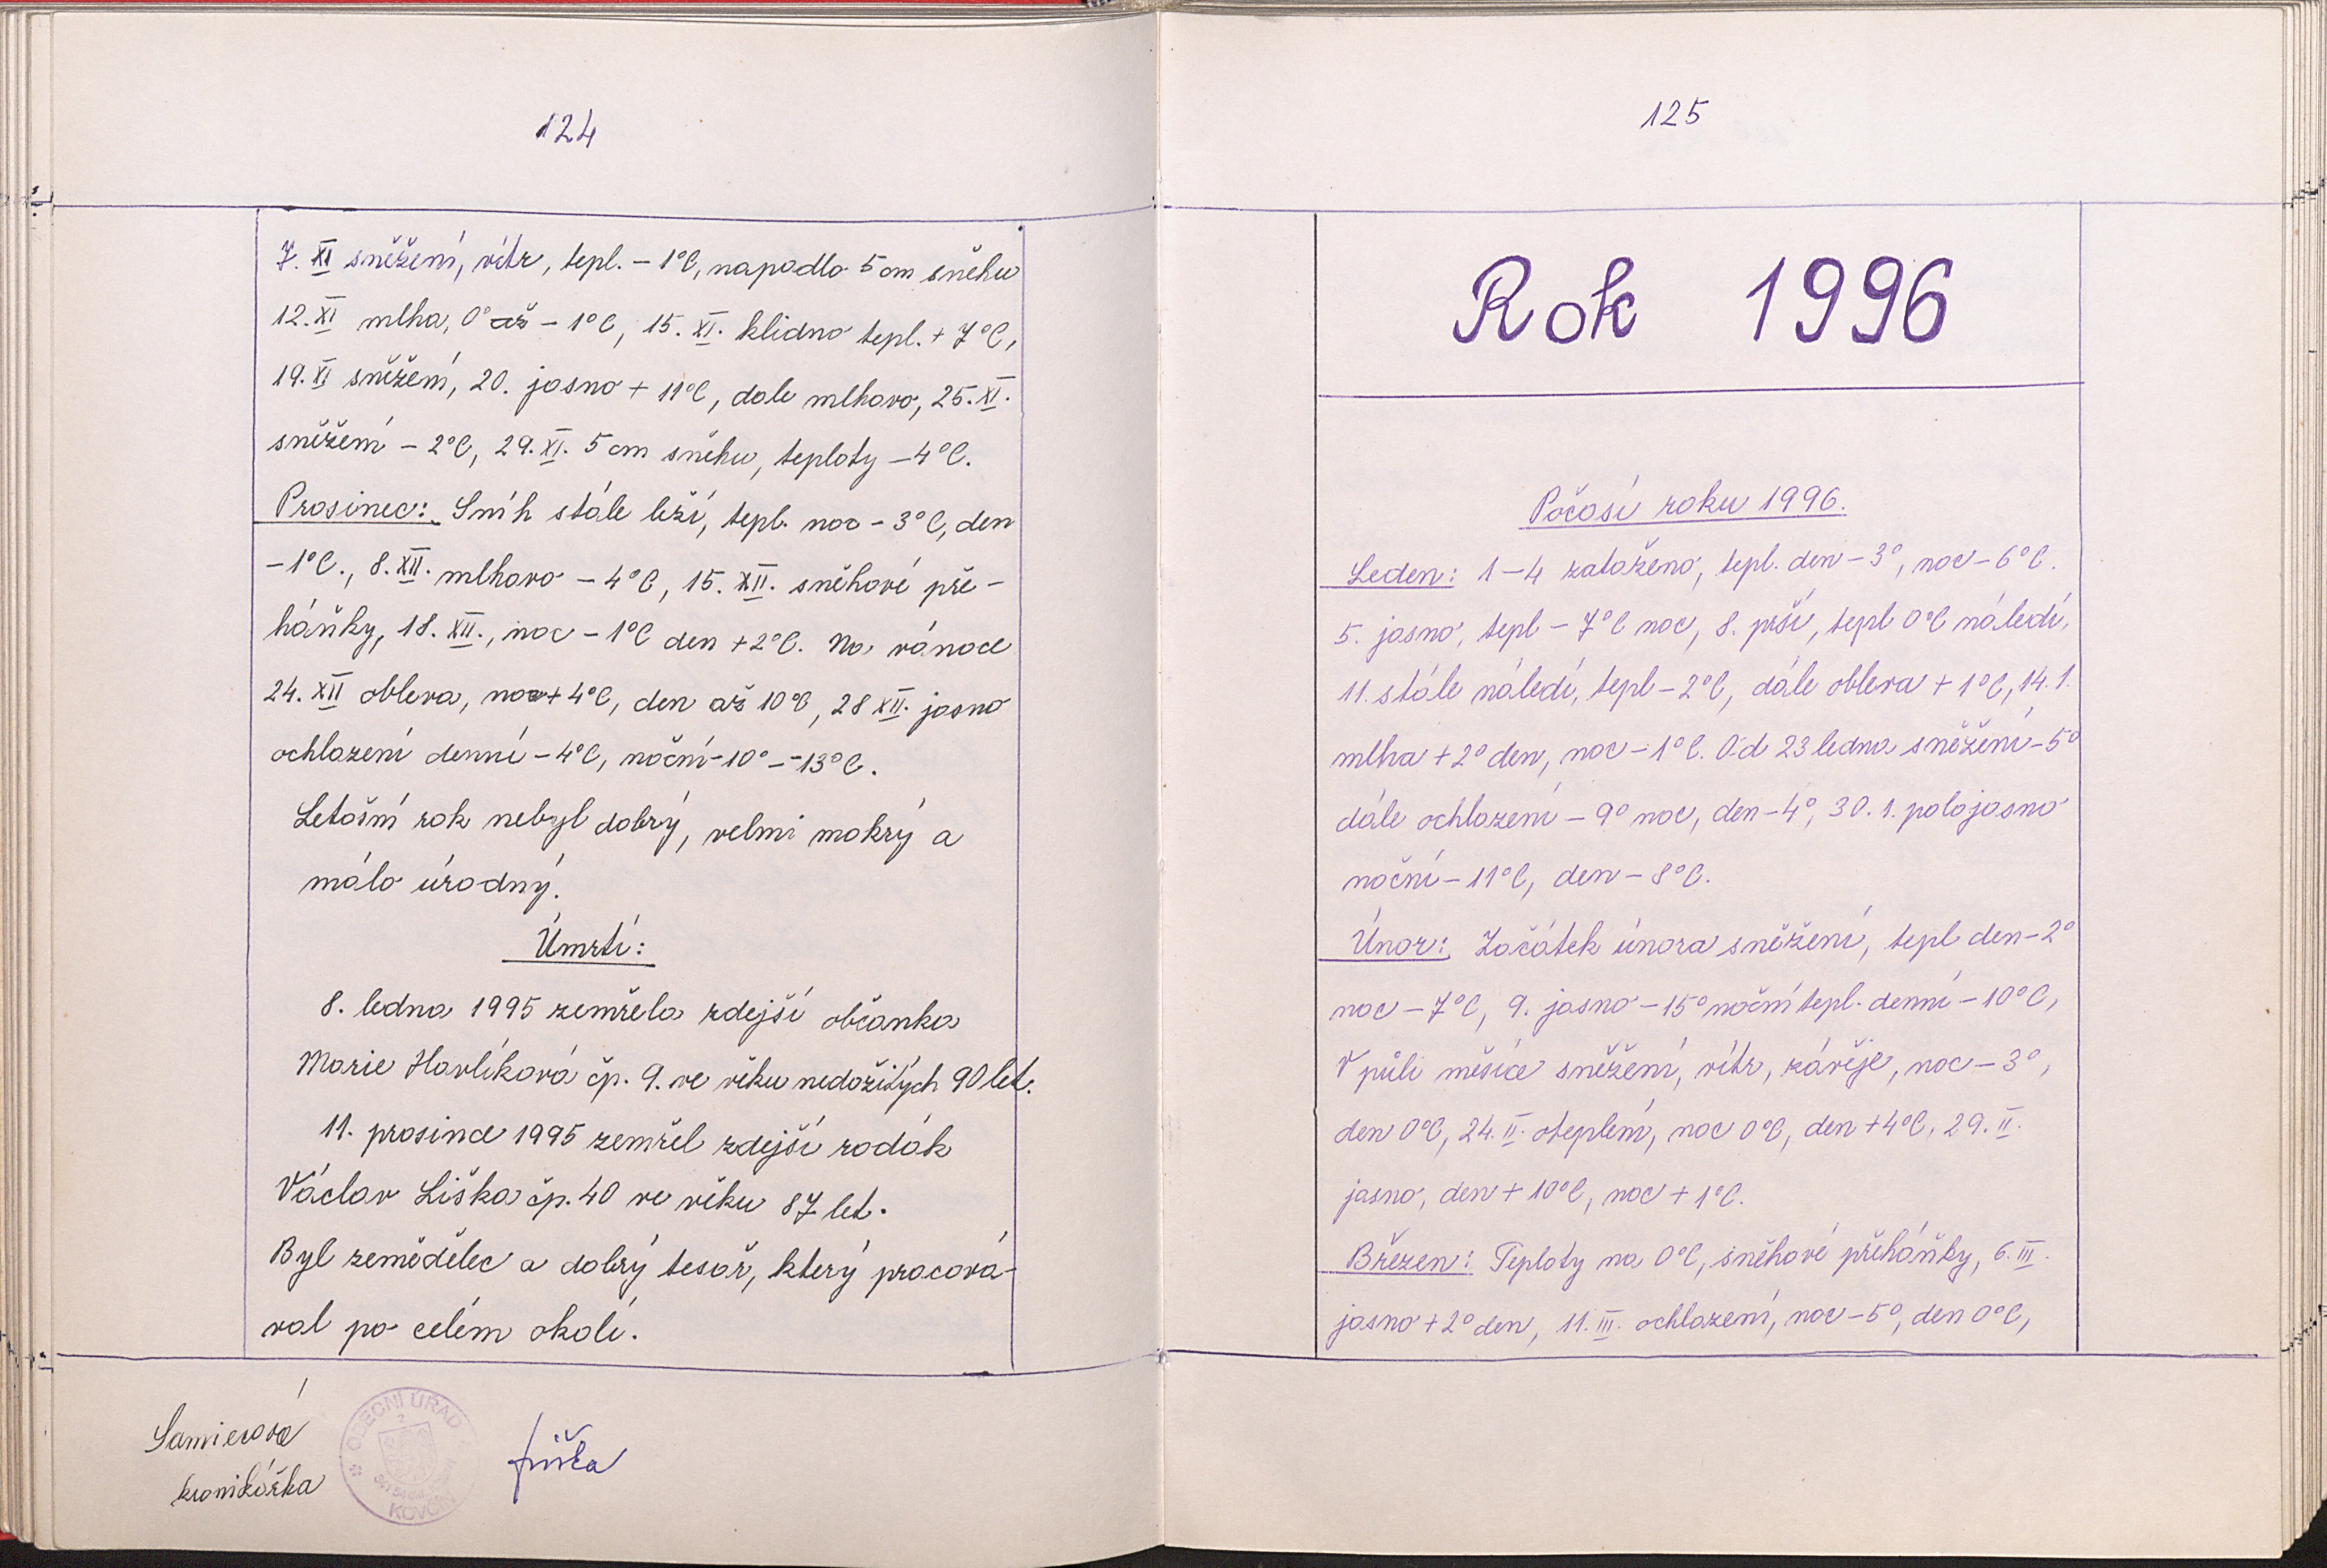 124
7. XI sněžení, vítr, tepl. - 1°C, napadlo 5 cm sněhu
12. XI mlha, 0° až - 1°C, 15. XI. klidno tepl. + 7°C,
19. XI sněžení, 20. jasno + 11°C, dále mlhavo, 25. XI.
sněžení - 2°C, 29. XI. 5 cm sněhu, teploty - 4°C.
Prosinec: Sníh stále leží, tepl. noc - 3°C, den
- 1°C., 8. XII. mlhavo - 4°C, 15. XII. sněhové pře-
háňky, 18. XII., noc - 1°C den + 2°C. Na vánoce
24. XII obleva, noc + 4°C, den až 10°C, 28 XII. jasno
ochlazení denní - 4°C, noční - 10° - - 13°C.
Letošní rok nebyl dobrý, velmi mokrý a
málo úrodný.
Úmrtí:
8. ledna 1995 zemřela zdejší občanka
Marie Havlíková čp. 9. ve věku nedožitých 90 let.
11. prosince 1995 zemřel zdejší rodák
Václav Liška čp. 40 ve věku 87 let.
Byl zemědělec a dobrý tesař, který pracová-
val po celém okolí.
kronikářka
OBECNÍ ÚŘAD
2
KOVČÍN
125
Rok 1996
Počasí roku 1996.
Leden: 1-4 zataženo, tepl. den - 3°, noc - 6°C.
5. jasno, tepl - 7°C noc, 8. prší, tepl 0°C náledí,
11. stále náledí, tepl - 2°C, dále obleva + 1°C, 14. 1.
mlha + 2° den, noc - 1°C. Od 23 ledna sněžení - 5°
dále ochlazení - 9° noc, den - 4°, 30. 1. polojasno
noční - 11°C, den - 8°C.
Únor: Začátek února sněžení, tepl den - 2°
noc - 7°C, 9. jasno - 15° noční tepl. denní - 10°C,
V půli měsíce sněžení, vítr, závěje, noc - 3°,
den 0°C, 24. II. oteplení, noc 0°C, den + 4°C, 29. II.
jasno, den + 10°C, noc + 1°C.
Březen: Teploty na 0°C, sněhové přeháňky, 6. III.
jasno + 2° den, 11. III. ochlazení, noc - 5°, den 0°C,